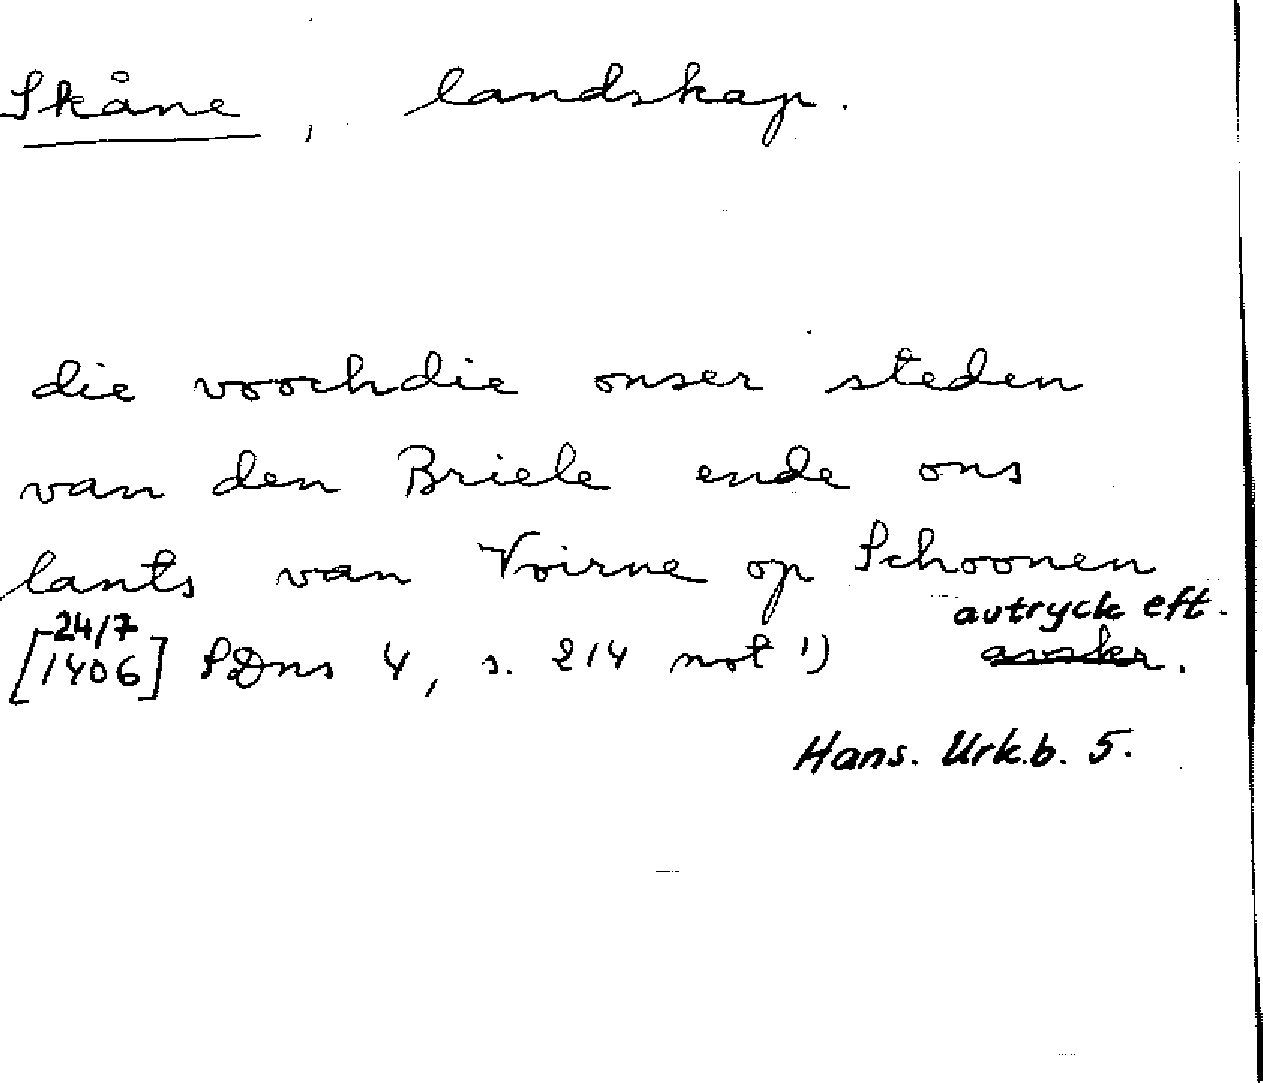 Skåne, landskap.
die voochdie onser steden
van den Briele ende ons
lants van Voirne op Schoonen
avtryck eft.
24/7
[1406] SDns 4, s. 214 not 1) avskr.
Hans. Urk.b. 5.